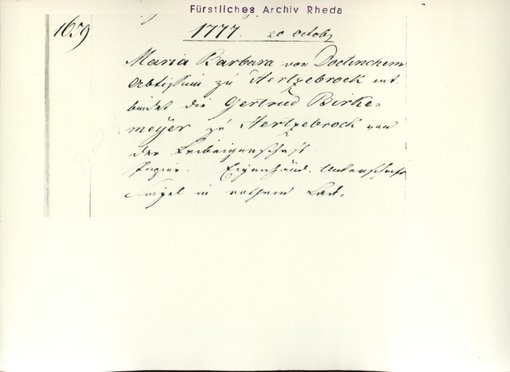 Fürstliches Archiv Rheda
1659 1777. 20 Octobr
Maria Barbara von Doetinchem
Abtissin zu Hertzebrock ent
bindet die Gertrud Birke-
meyer zu Hertzebrock von
der Leibeigenschaft
Papier. Eigenhänd. Unterschrift
Siegel in rothem Lack.